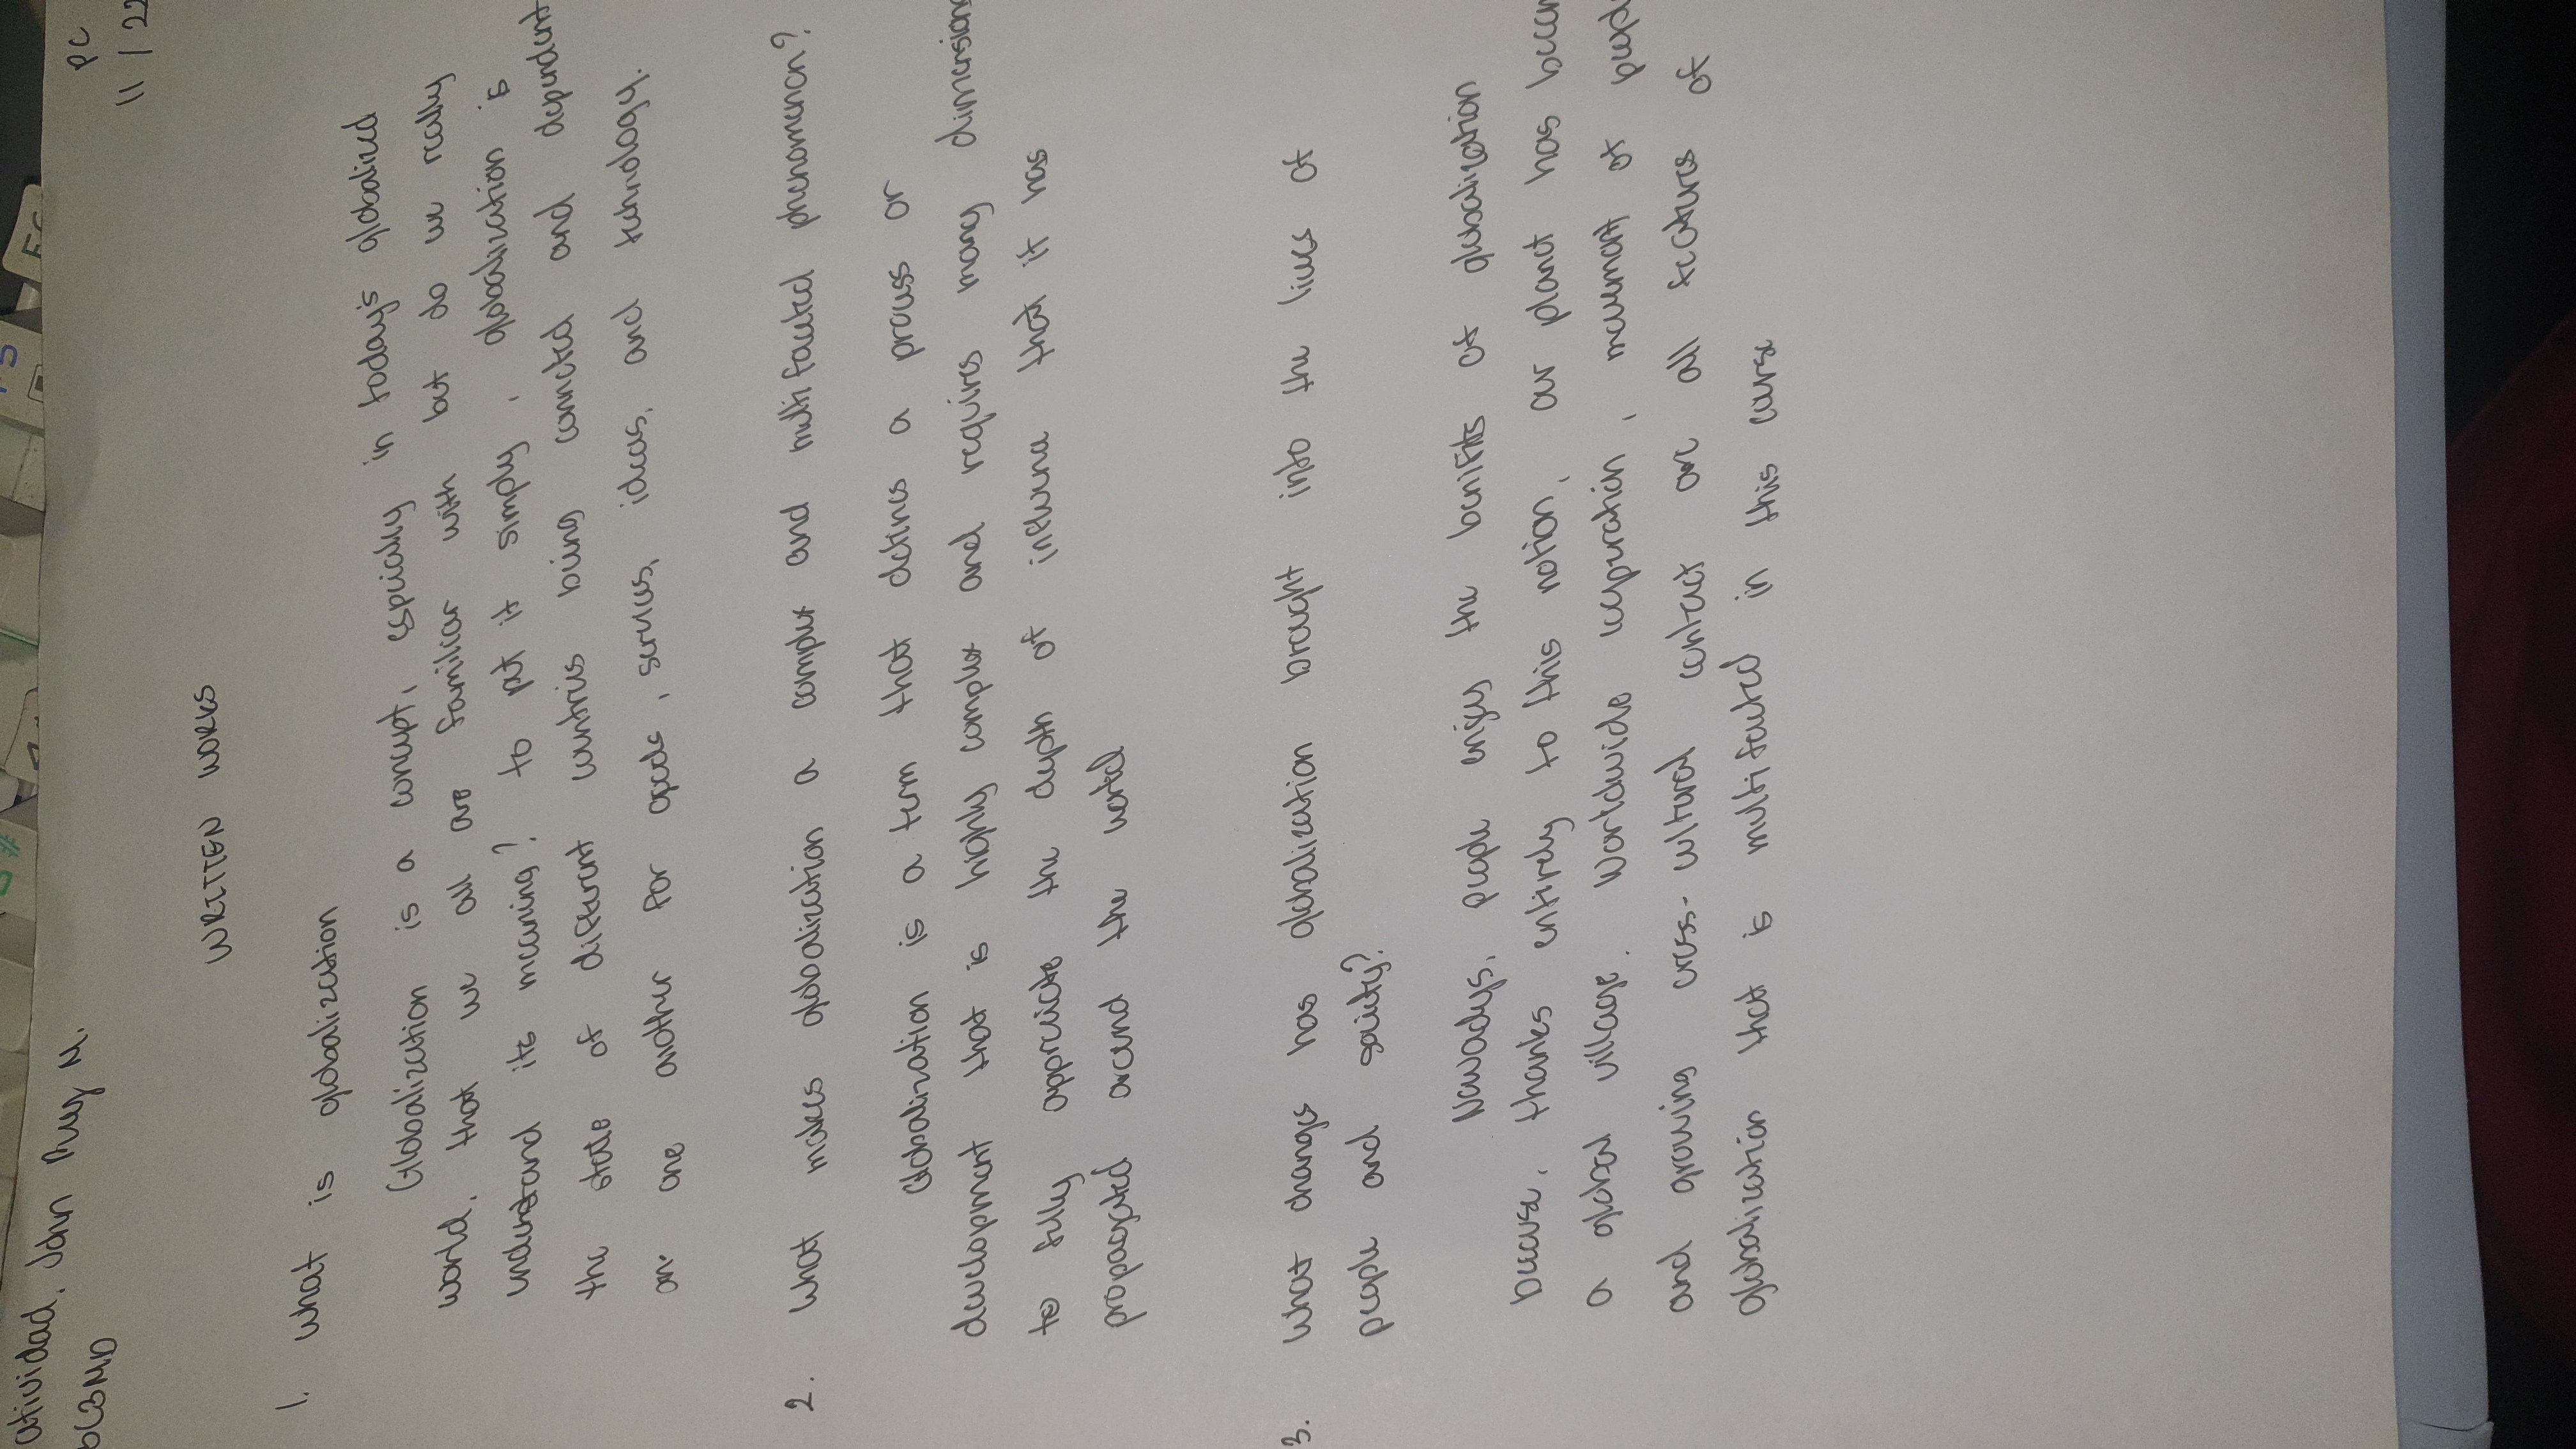 atividad, John Rey M.
PC
11 / 22
WRITTEN WORKS
1. What is globalization
Globalization is a concept, especially in today's globalized
world, that we all are familiar with but do we really
understand its meaning? to put it simply, globalization is
the state of different countries being connected and dependent
on one another for goods, services, ideas, and technology.
2. What makes globalization a complex and multifaceted phenomenon?
Globalization is a term that defines a process or
development that is highly complex and requires many dimensions
to fully appreciate the depth of influence that it has
propagated around the world
3. What changes has globalization brought into the lives of
people and society?
Nowadys, people enjoy the benifits of globalization
because, thanks entirely to this notion, our planet has becom
a global village. Worldwide cooperation, movement of peopl
and growing cross-cultural contact are all features of
globalization that is multifaceted in this course